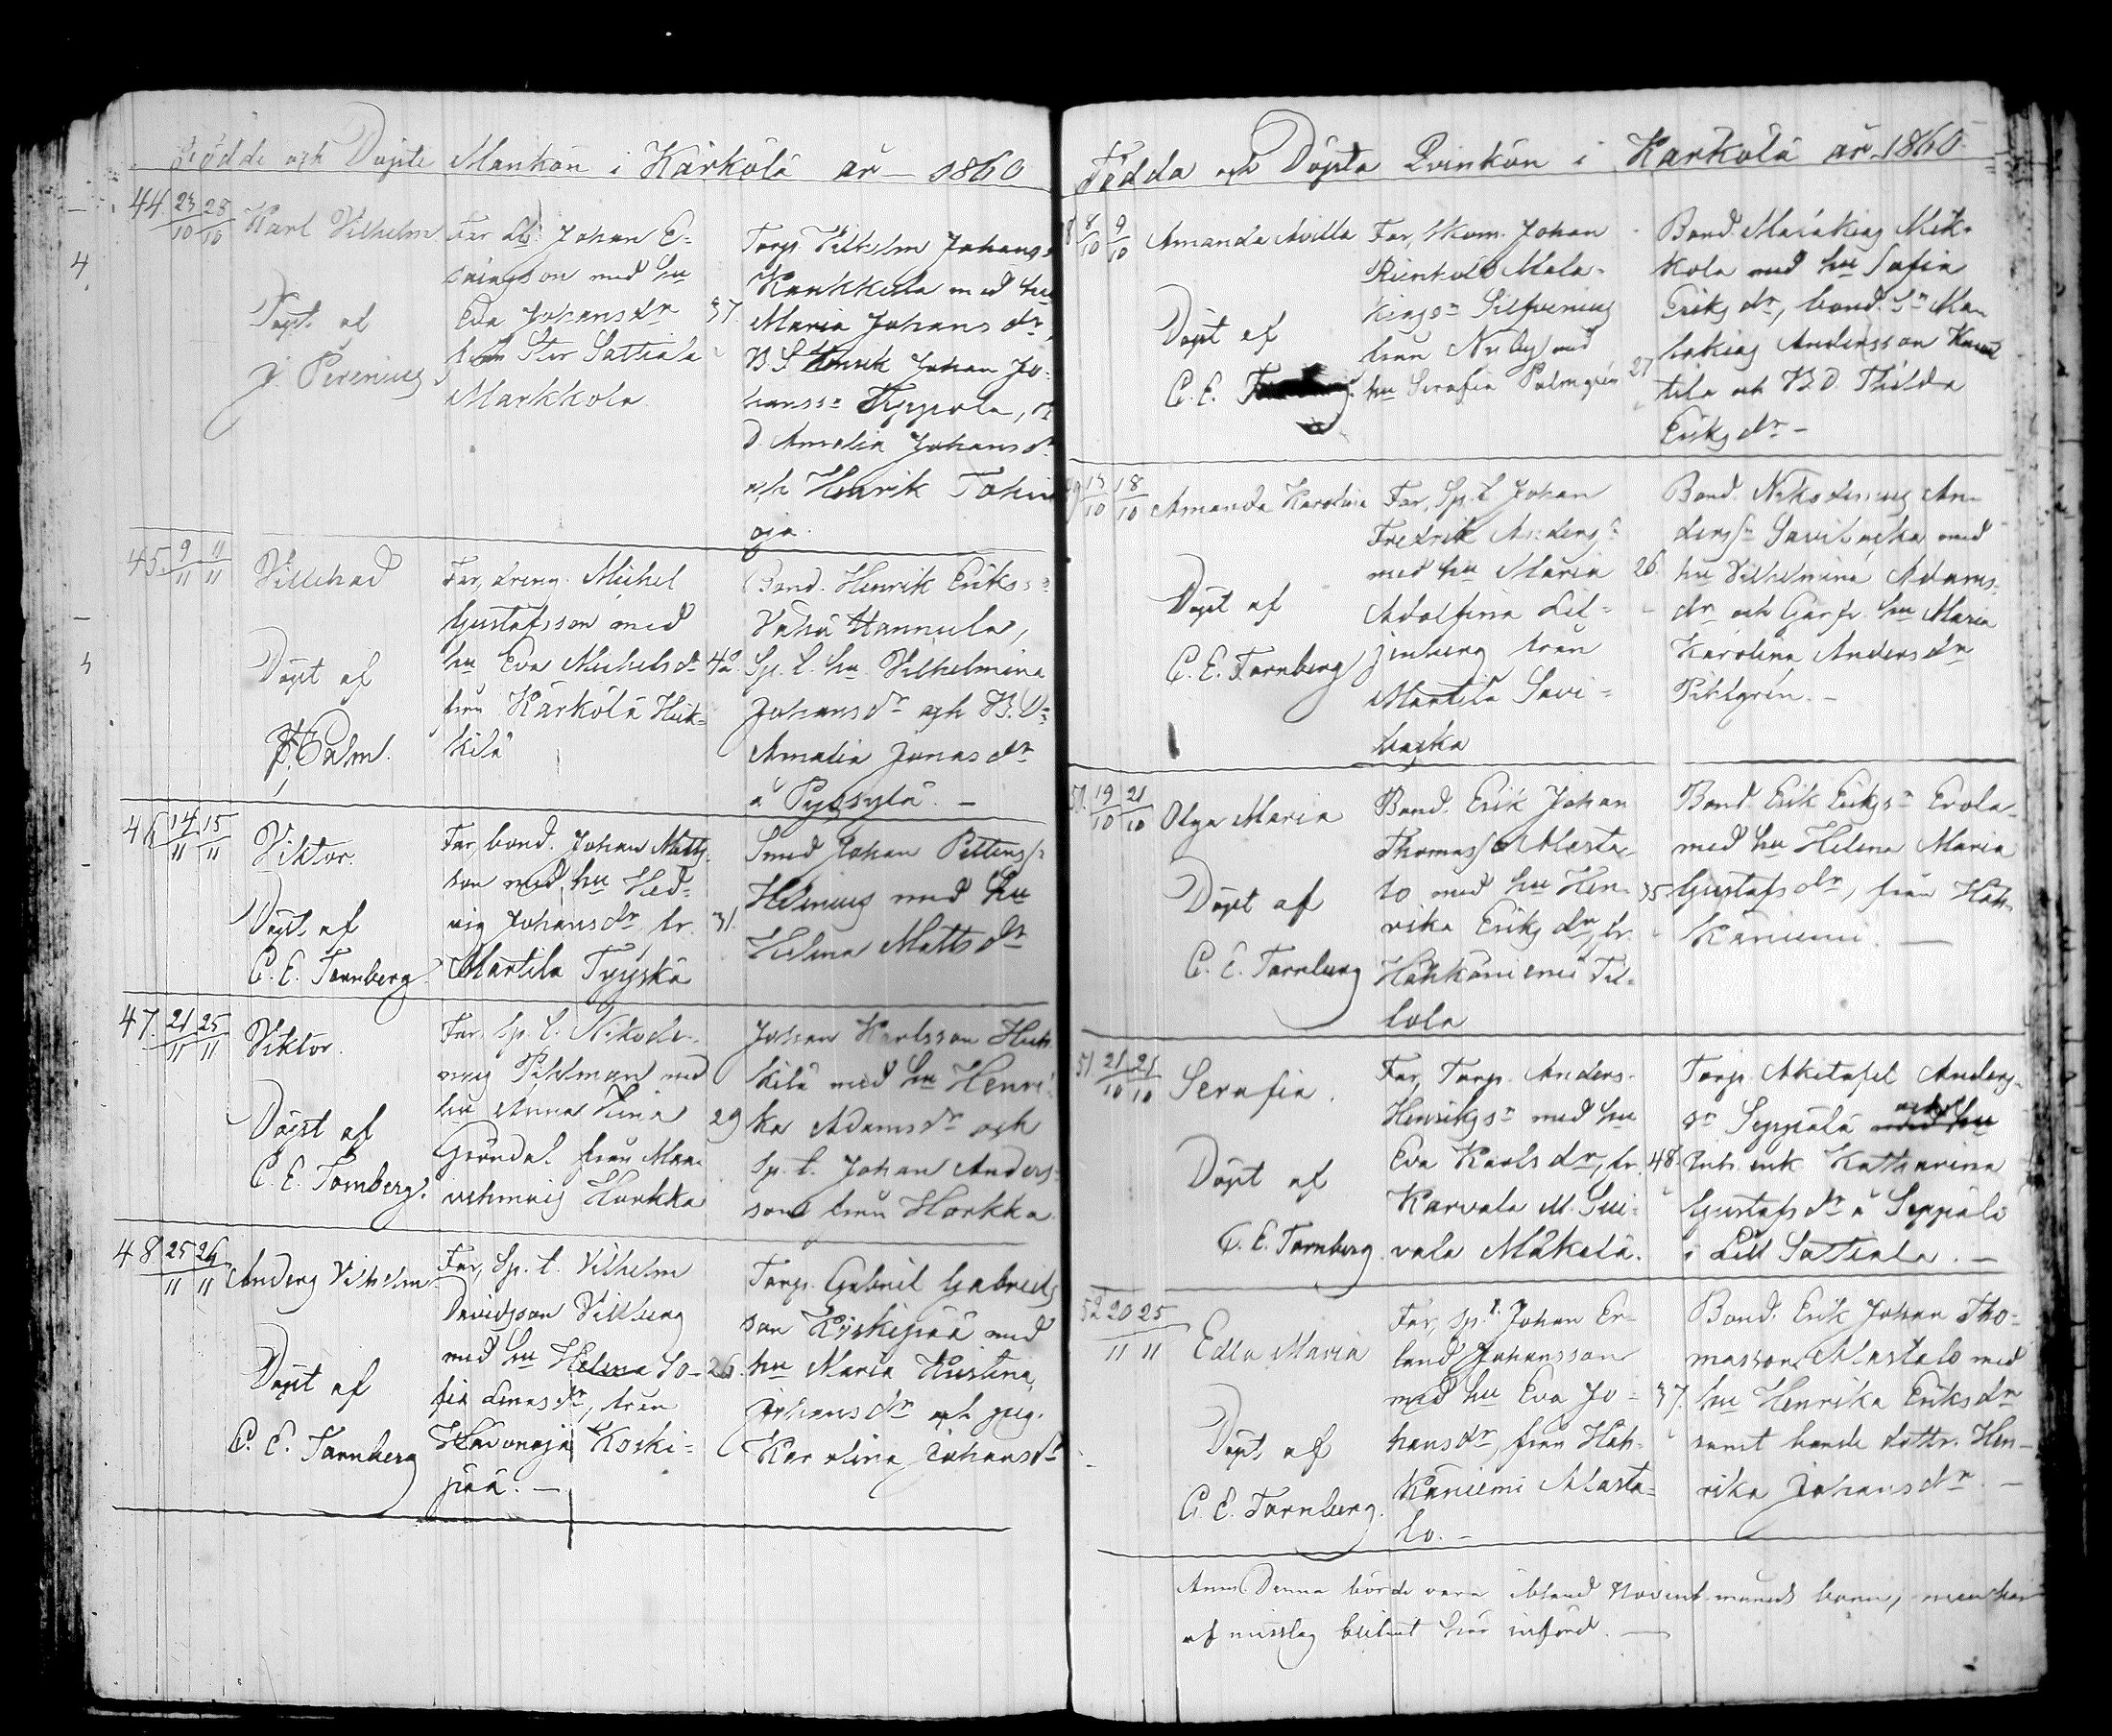 Födde och Döpte Mankön i Kärkölä år 1860
44. 23/10 25/10 Karl Vilhelm
Döpt af
J. Perenius
Far Johan E-
med hu
Eva Johansdr 37
från Stor Sattiala
Markkola
Torp. Vilhelm Johans
Kaukkula med hu
Maria Johansdr,
B. S. Henrik Johan Jo-
hanss Eppola,
D. Amalia Johansdr
och Henrik
oja.
45. 9/11 11/11 Villehad
Döpt af
Palm.
Far, dreng. Michel
Gustafsson med
hu Eva Michelsdr 42.
från Kärkölä Huk-
kila
Bond. Henrik Erikss
Vähä Hannula,
Sp. l. hu Vilhelmina
Johansdr och B. D:
Amalia Jonasdr
å Pyssylä. —
46. 14/11 15/11 Viktor.
Döpt af
C. E. Tornberg
Far, bond. Johan Matts-
son med hu Hed-
vig Johansdr, fr. 31.
Martila Tyyskä
Smed Johan Petterss
Helenius med hu
Helena Mattsdr
47. 21/11 25/11 Viktor.
Döpt af
C. E. Tornberg.
Far, Sp. l. Nikode-
mus Pihlman med
hu Anna Lina 29
Gröndal från Maa-
Horkka
Johan Karlsson Huk-
kila med hu Henri-
ka Adamsdr och
Sp. l. Johan Anders-
son från Horkka.
48 25/11 26/11 Anders Vilhelm
Döpt af
C. E. Tornberg
Far, Sp. l. Vilhelm
Davidsson Villberg
med hu Helena So- 26.
fia Linusdr, från
Hävonoja Koski-
pää. —
Torp. Gabriel Gabriels
son Koskipää med
hu Maria Kristina
Johansdr och pig.
Karolina Johansdr
Födda och Döpta Qvinkön i Kärkölä år 1860.
8/10 9/10 Amanda Avilla
Döpt af
C. E. Tornberg
Far, Skom. Johan
Reinhold Mala-
kiass Silfvenius
från Nyby med
hu Serafia Palmgrén 27
Bond. Malakias Mik-
kola med hu Sofia
Eriksdr, bond. Sn Ma-
lakias Andersson
tila och B. D. Thilda
Eriksdr —
13/10 18/10 Amanda Karolina
Döpt af
C. E. Tornberg
Far, Sp. l. Johan
Fredrik Anderss
med hu Maria 26
Adolfina Lil-
jeberg från
Martila Savi-
backa
Bond. Nikodemus An-
derss Savibacka med
hu Vilhelmina Adams-
dr och Garfv. hu Maria
Karolina Andersdr
Pihlgrén. —
50. 19/10 21/10 Olga Maria
Döpt af
C. E. Tornberg
Bond. Erik Johan
Thomass Masta-
lo med hu Hen- 35
rika Eriksdr, fr.
Hähkäniemi Til-
lola
Bond. Erik Erikss Erola
med hu Helena Maria
Gustafsdr, från Häh-
käniemi. —
51 21/10 21/10 Serafia.
Döpt af
C. E. Tornberg.
Far, Torp. Anders
Henrikss med hu
Eva Karlsdr, fr. 48.
Karvala M. Gui-
vala Mäkelä.
Torp. Akitofel Anders-
sn Seppälä med hu
och
Inh. enk Katharina
Gustafsdr å Seppälä
i Lill Sattiala. —
52 20/11 25/11 Edla Maria
Döpt af
C. E. Tornberg.
Far, Sp. l. Johan Er-
land Johansson
med hu Eva Jo- 37.
hansdr, från Häh-
käniemi Masta-
lo. —
Bond. Erik Johan Tho-
masson Mastalo med
hu Henrika Eriksdr
samt bonde dottr. Hen-
rika Johansdr. —
Anm. Denna borde vara ibland Novemb. månads barn, men har
af misstag blifvit här införd. —